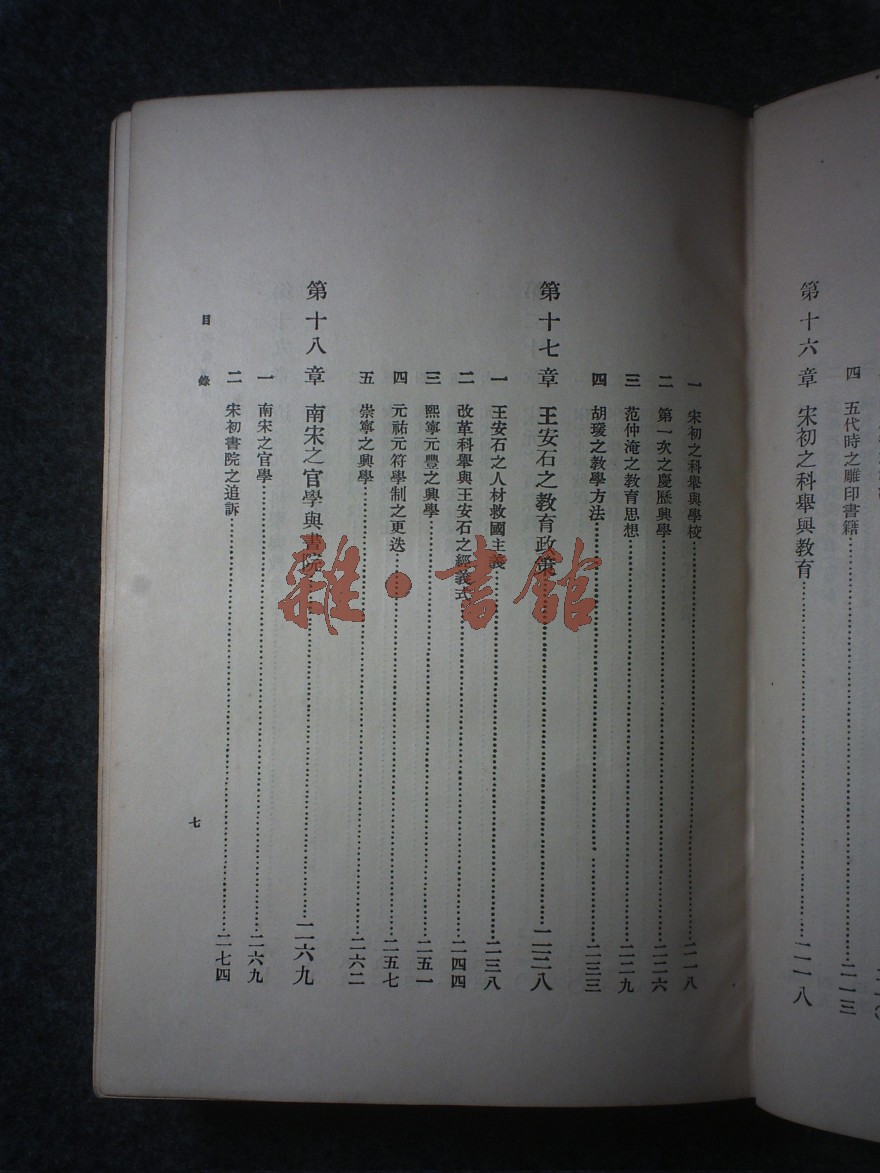 四　五代時之雕印書籍……二一三
第十六章　宋初之科舉與教育……二一八
一　宋初之科舉與學校……二一八
二　第一次之慶歷興學……二二六
三　范仲淹之教育思想……二二九
四　胡瑗之教學方法……二三三
第十七章　王安石之教育政策……二三八
一　王安石之人材救國主義……二三八
二　改革科舉與王安石之經義式……二四四
三　熙寧元豐之興學……二五一
四　元祐元符學制之更迭……二五七
五　崇寧之興學……二六二
第十八章　南宋之官學與書院……二六九
一　南宋之官學……二六九
二　宋初書院之追訴……二七四
目錄
七
雜·書館